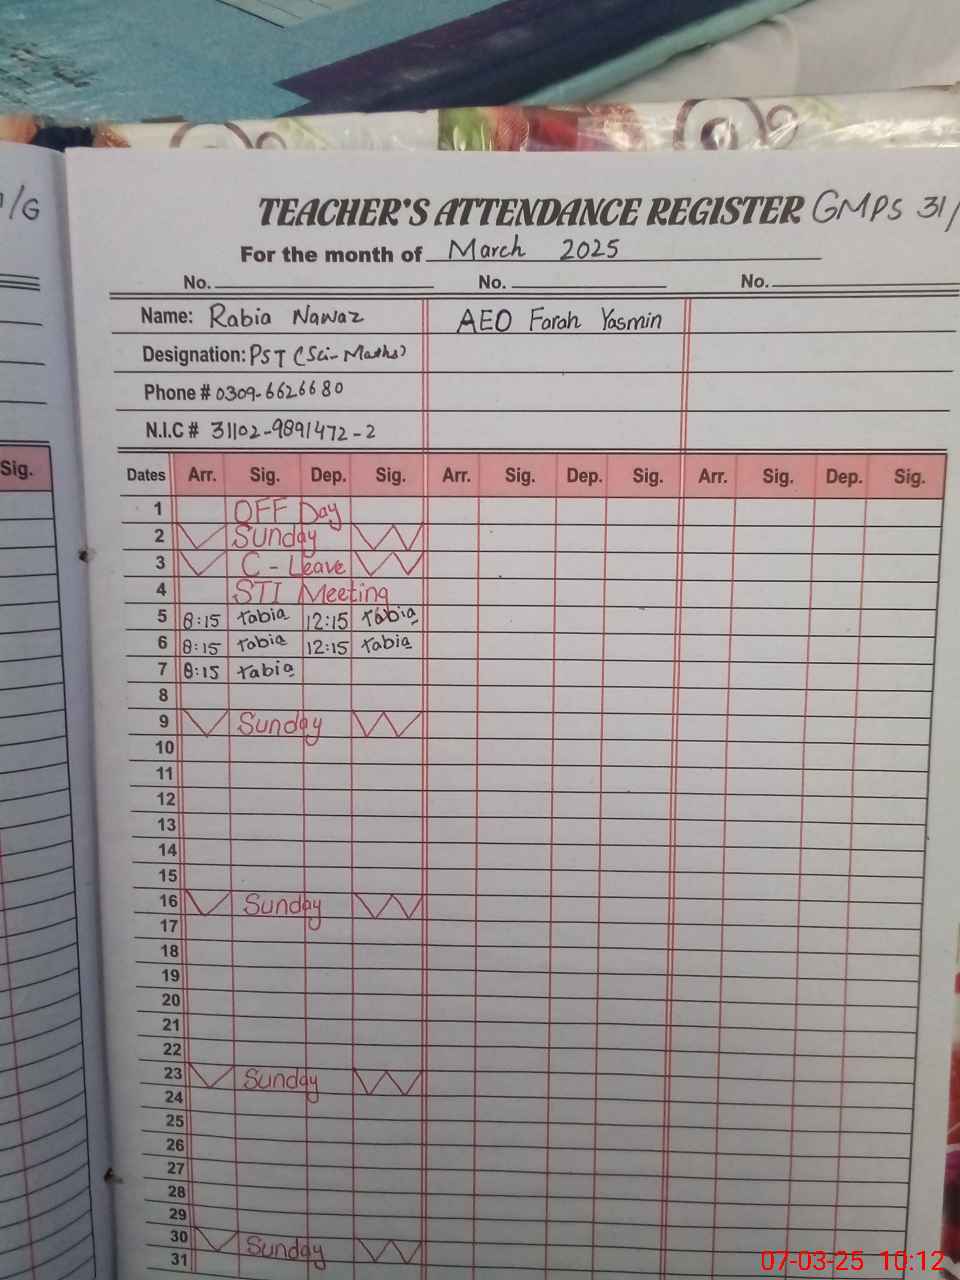 /G
TEACHER'S ATTENDANCE REGISTER GMPS 31/
For the month of March 2025
No. No. No.
Name: Rabia Nawaz AEO Farah Yasmin
Designation: PST (Sci-Maths)
Phone # 0309-6626680
N.I.C # 31102-9891472-2
Sig. Dates Arr. Sig. Dep. Sig. Arr. Sig. Dep. Sig. Arr. Sig. Dep. Sig.
1 OFF Day
2 Sunday
3 C-Leave
4 STI Meeting
5 8:15 rabia 12:15 rabia
6 8:15 rabia 12:15 rabia
7 8:15 rabia
8
9 Sunday
10
11
12
13
14
15
16 Sunday
17
18
19
20
21
22
23 Sunday
24
25
26
27
28
29
30 Sunday
31
07-03-25 10:12